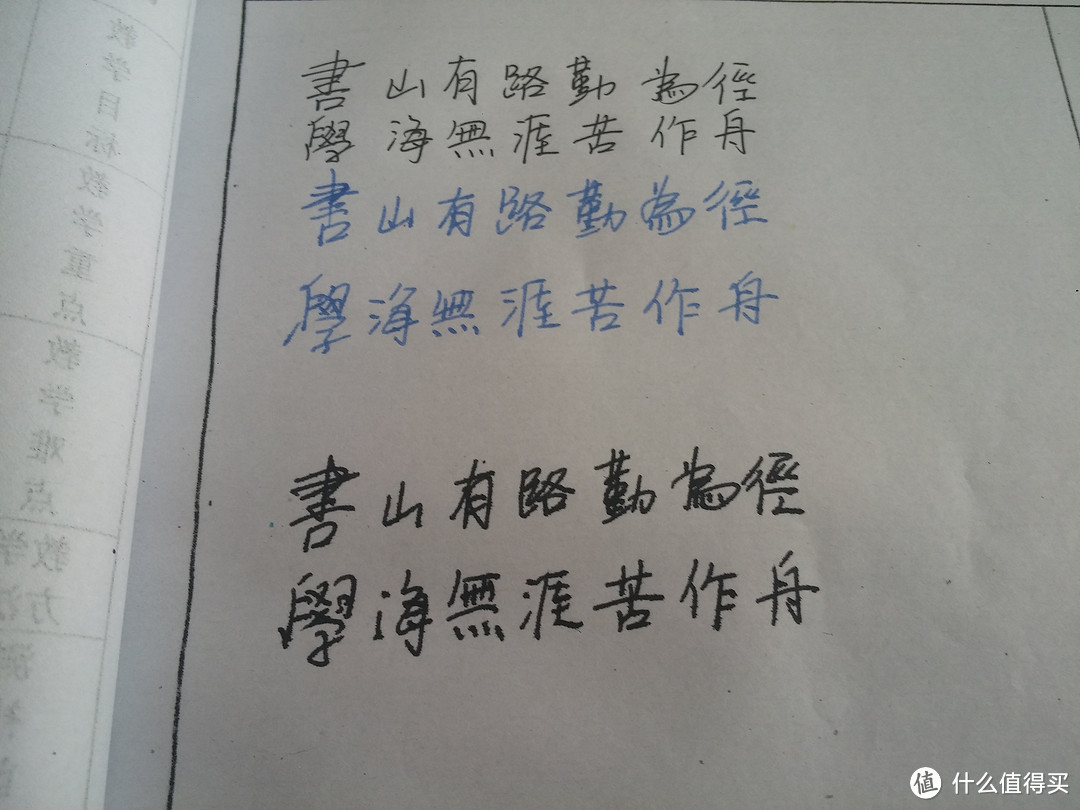 書山有路勤為徑
學海無涯苦作舟
書山有路勤為徑
學海無涯苦作舟
書山有路勤為徑
學海無涯苦作舟
教学目标
教学重点
教学难点
教学
方法
值 什么值得买